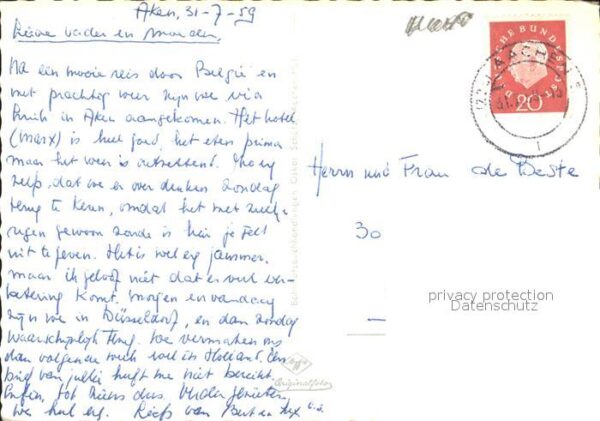 Aken, 31-7-59
Lieve vader en moeder,
Na een mooie reis door België en
met prachtig weer zijn we via
in Aken aangekomen. Het hotel
(Marx) is heel goed, het eten prima
maar het weer is ontzettend. Zo erg
zelfs, dat we er over denken Zondag
terug te keren, omdat het met zulk
gewoon zonde is hier je geld
uit te geven. Het is wel erg jammer.
maar ik geloof niet dat er veel ver-
betering komt. Morgen en vandaag
zijn we in Düsseldorf, en dan Zondag
waarschijnlijk terug. We vermaken ons
dan volgende week wel in Holland. Een
brief van jullie heeft me niet bereikt.
Enfin, tot ziens dus. Verder genieten
we heel erg. Liefs van Bert en
Herrn und Frau de Beste
30
DEUTSCHE BUNDESPOST
20
AACHEN
privacy protection
Datenschutz
Originalfoto